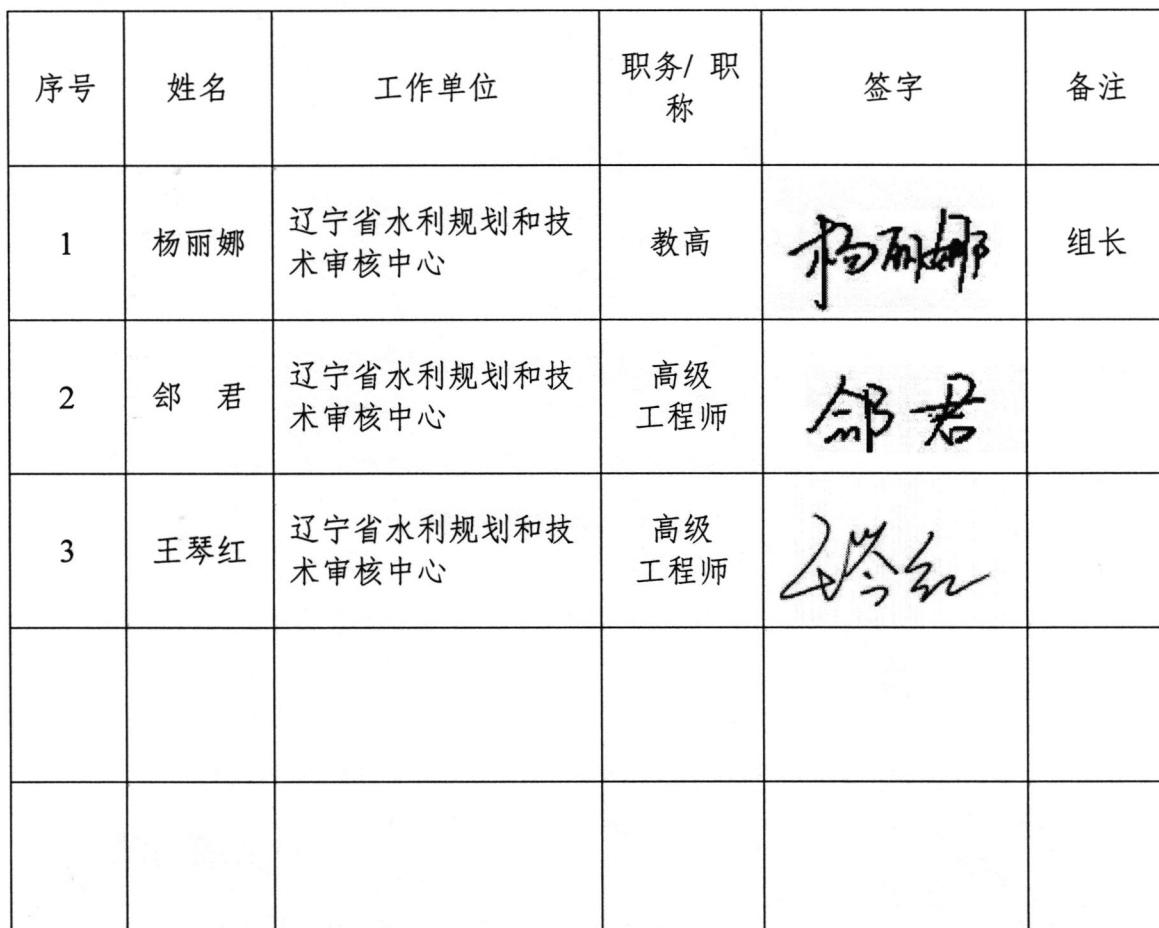 序号 姓名 工作单位 职务/ 职称 签字 备注
1 杨丽娜 辽宁省水利规划和技术审核中心 教高 杨丽娜 组长
2 郐 君 辽宁省水利规划和技术审核中心 高级工程师 郐君
3 王琴红 辽宁省水利规划和技术审核中心 高级工程师 王琴红